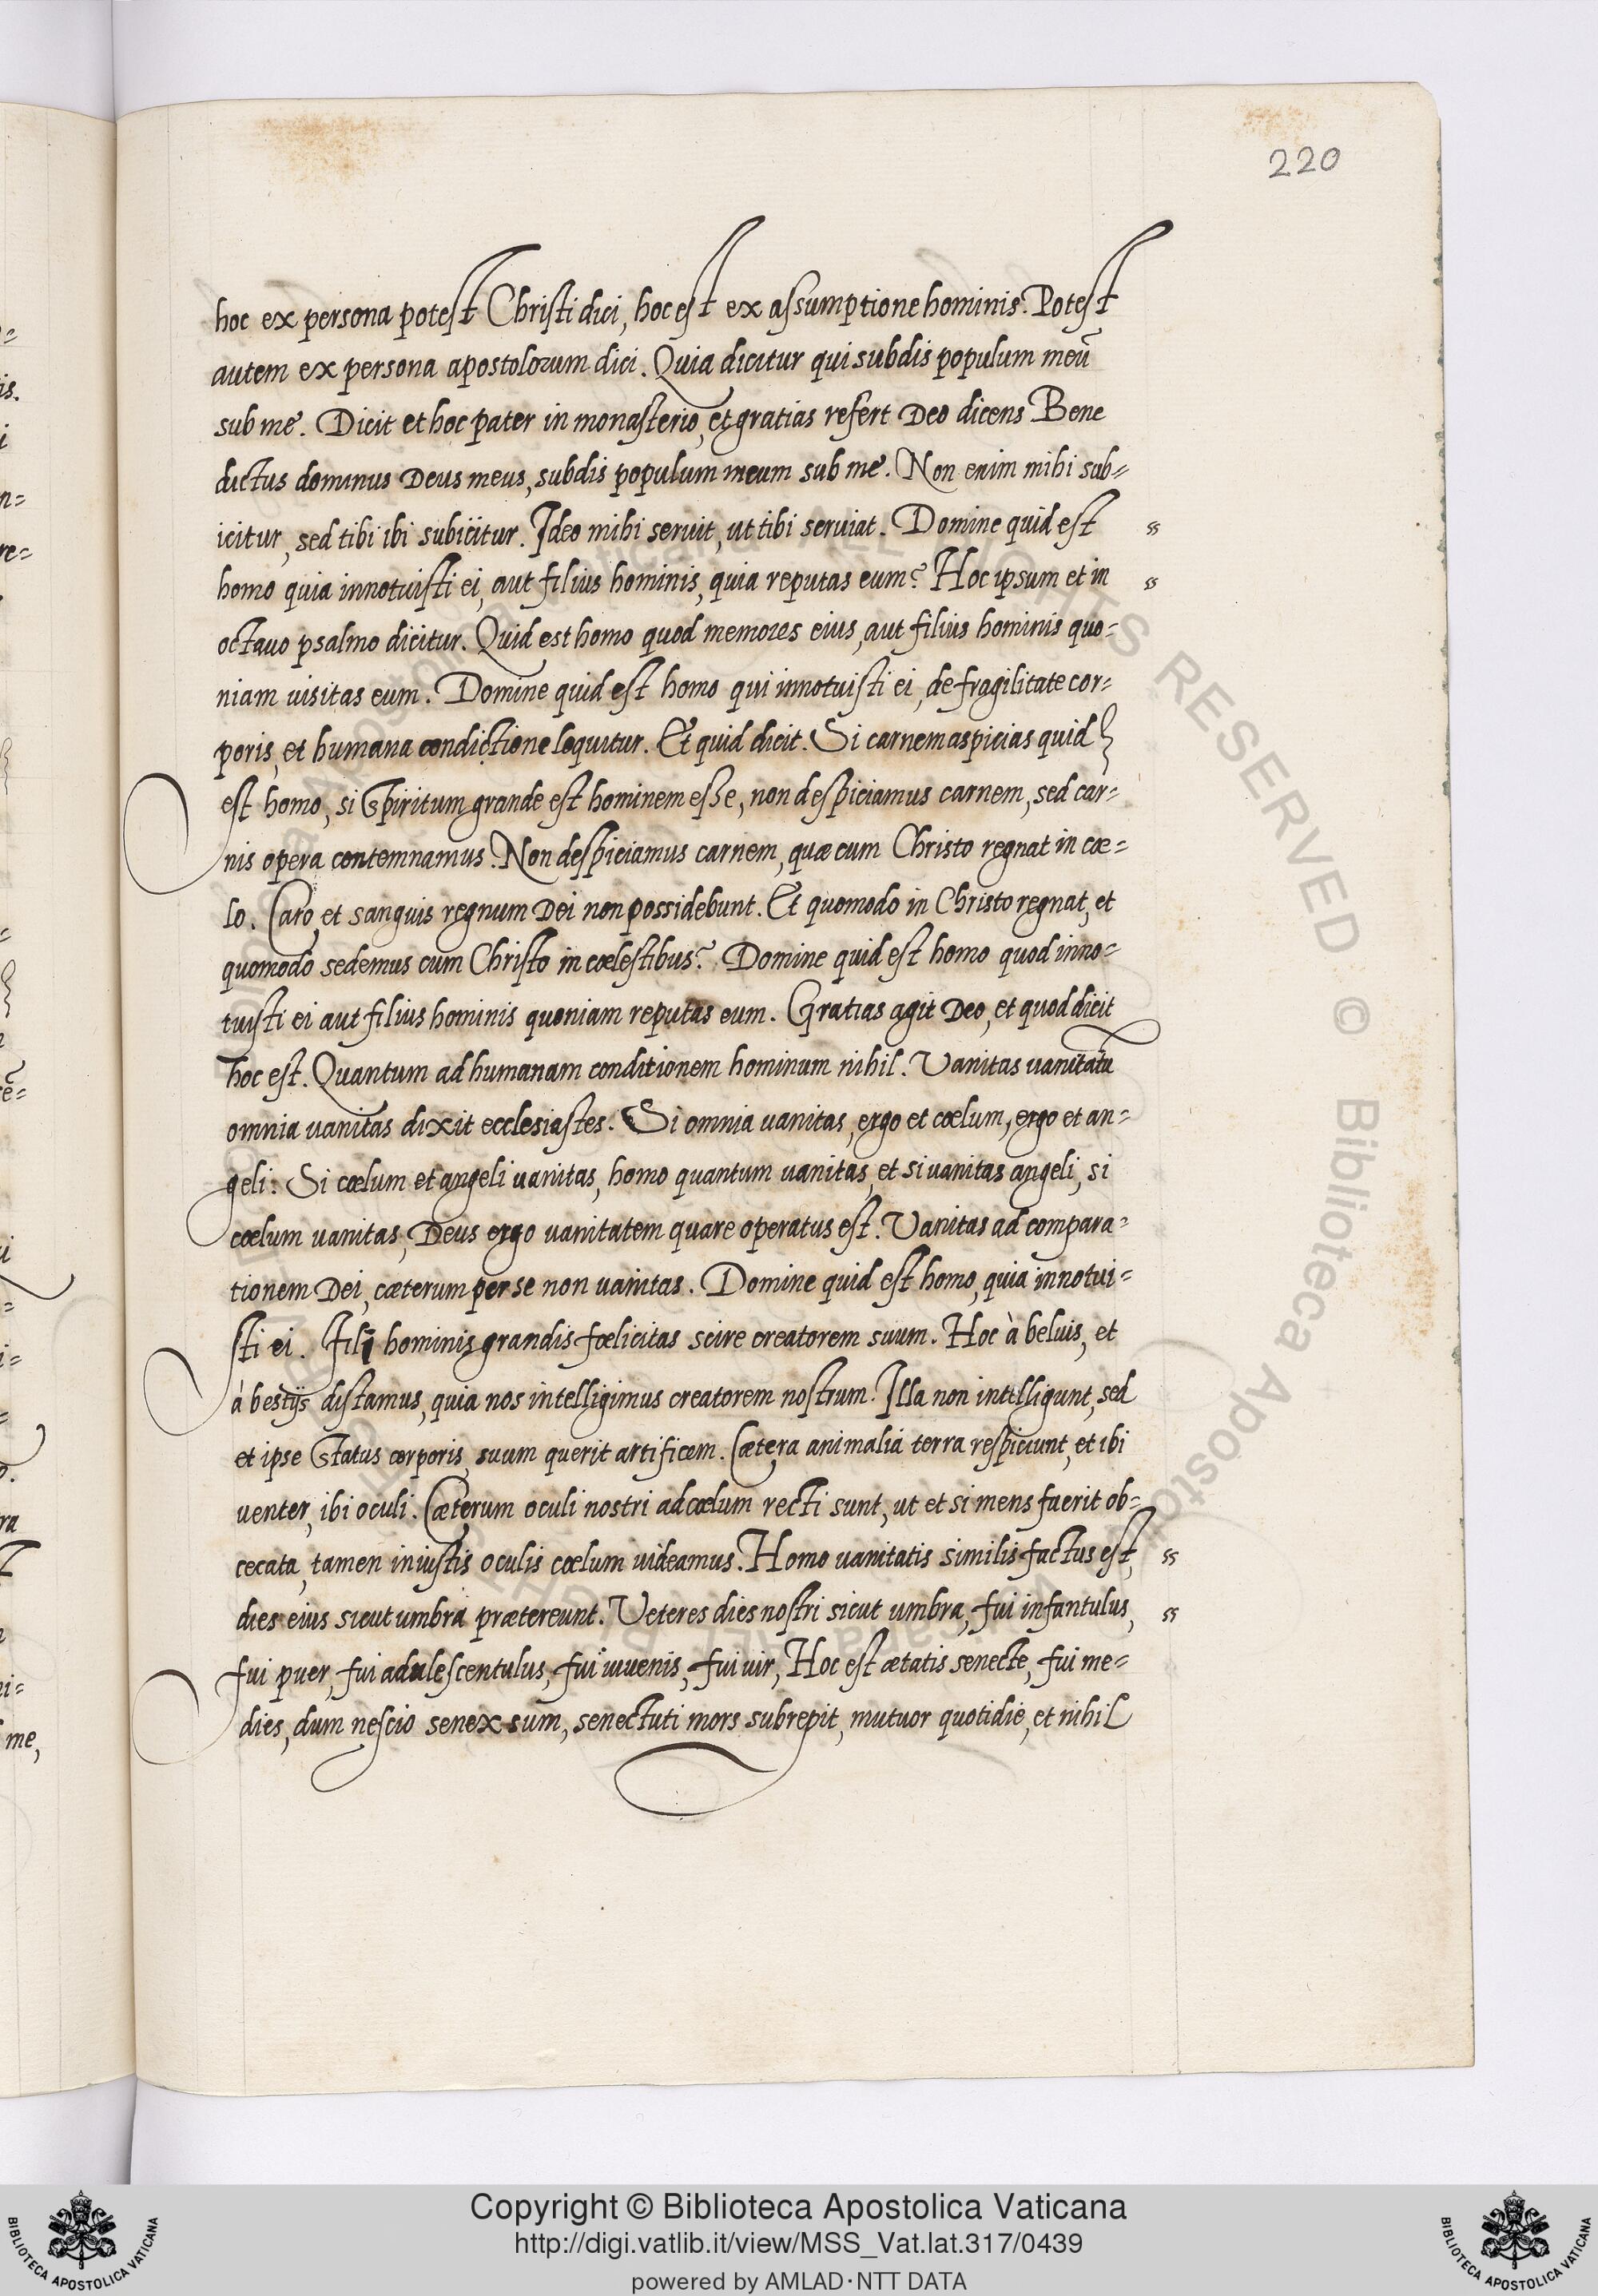 220
hoc ex persona potest Christi dici, hoc est ex assumptione hominis. Potest
autem ex persona apostolorum dici. Quia dicitur qui subdis populum meū
sub me. Dicit et hoc pater in monasterio, et gratias refert Deo dicens Bene
dictus dominus Deus meus, subdis populum meum sub me. Non enim mihi sub=
icitur, sed tibi ibi subicitur. Ideo mihi seruit, ut tibi seruiat. Domine quid est
homo quia innotuisti ei, aut filius hominis, quia reputas eum? Hoc ipsum et in
octauo psalmo dicitur. Quid est homo quod memores eius, aut filius hominis quo=
niam uisitas eum. Domine quid est homo qui innotuisti ei, de fragilitate cor=
poris, et humana condictione loquitur. Et quid dicit. Si carnem aspicias quid
est homo, si Spiritum grande est hominem esse, non despiciamus carnem, sed car=
nis opera contemnamus. Non despiciamus carnem, quæ cum Christo regnat in cœ=
lo. Caro, et sanguis regnum Dei non possidebunt. Et quomodo in Christo regnat, et
quomodo sedemus cum Christo in cœlestibus? Domine quid est homo quod inno=
tuisti ei aut filius hominis quoniam reputas eum. Gratias agit Deo, et quod dicit
hoc est. Quantum ad humanam conditionem hominum nihil. Vanitas vanitatū
omnia uanitas dixit ecclesiastes. Si omnia uanitas, ergo et cœlum, ergo et an=
geli: Si cœlum et angeli uanitas, homo quantum uanitas, et si uanitas angeli, si
cœlum uanitas, Deus ergo uanitatem quare operatus est. Vanitas ad compara=
tionem Dei, cæterum per se non uanitas. Domine quid est homo, quia innotui=
sti ei. Filij hominis grandis fœlicitas scire creatorem suum. Hoc à beluis, et
à bestijs distamus, quia nos intelligimus creatorem nostrum. Illa non intelligunt, sed
et ipse Status corporis, suum querit artificem. Cætera animalia terra respiciunt, et ibi
uenter, ibi oculi. Cæterum oculi nostri ad cœlum recti sunt, ut et si mens fuerit ob=
cecata, tamen iniustis oculis cœlum uideamus. Homo uanitatis similis factus est,
dies eius sicut umbra prætereunt. Veteres dies nostri sicut umbra, fui infantulus,
fui puer, fui adulescentulus, fui iuuenis, fui uir, Hoc est ætatis senecte, fui me=
dies, dum nescio senex sum, senectuti mors subrepit, mutuor quotidie, et nihil
Copyright © Biblioteca Apostolica Vaticana
http://digi.vatlib.it/view/MSS_Vat.lat.317/0439
powered by AMLAD·NTT DATA
BIBLIOTECA APOSTOLICA VATICANA
BIBLIOTECA APOSTOLICA VATICANA